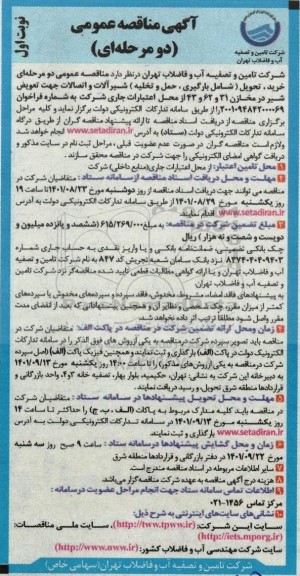 نوبت اول
آگهی مناقصه عمومی
(دو مرحله‌ای)
شرکت تامین و تصفیه
آب و فاضلاب تهران
شرکت تامین و تصفیه آب و فاضلاب تهران درنظر دارد مناقصه عمومی دو مرحله‌ای
خرید ، تحویل ( شامل بارگیری ، حمل و تخلیه ) شیرآلات و اتصالات جهت تعویض
شیر در مخازن ۳۱ و ۶۲ و ۴۳ از محل اعتبارات جاری شرکت به شماره فراخوان
۲۰۰۱۰۹۴۸۴۲۰۰۰۰۶۹ را از طریق سامانه تدارکات الکترونیکی دولت برگزار نماید و کلیه مراحل
برگزاری مناقصه از دریافت اسناد مناقصه تا ارائه پیشنهاد مناقصه گران از طریق درگاه
سامانه تدارکات الکترونیکی دولت (ستاد) به آدرس www.setadiran.ir انجام خواهد شد
لازم است مناقصه گران در صورت عدم عضویت قبلی ، مراحل ثبت نام در سایت مذکور و
دریافت گواهی امضای الکترونیکی را جهت شرکت در مناقصه محقق سازند .
محل تامین اعتبار: از محل اعتبارات جاری(منابع داخلی) شرکت
مهلت و محل دریافت اسناد مناقصه ازسامانه ستاد : متقاضیان شرکت در
مناقصه می توانند جهت دریافت اسناد مناقصه از روز دوشنبه مورخ ۱۴۰۱/۰۸/۲۳ تا ساعت ۱۹
روز یکشنبه مورخ ۱۴۰۱/۰۸/۲۹ از طریق سامانه تدارکات الکترونیکی دولت به آدرس
www.setadiran.ir اقدام نمایند.
مبلغ تضمین شرکت در مناقصه: به مبلغ ۶۱۵/۲۶۹/۰۰۰ (ششصد و پانزده میلیون و
دویست و شصت و نه هزار) ریال
چک بانکی تضمینی، ضمانتنامه بانکی و یا واریز نقدی به حساب جاری شماره
نزد بانک سامان شعبه تجریش کد ۸۴۷ به نام شرکت تامین و تصفیه
آب و فاضلاب تهران و یا ارائه گواهی مطالبات قطعی تایید شده مناقصه‌گر نزد شرکت تامین
و تصفیه آب و فاضلاب تهران
به پیشنهادهای فاقد امضاء، مشروط، مخدوش، فاقد سپرده و سپرده‌های مخدوش یا سپرده‌های
کمتر از میزان مقرر، چک شخصی و نظایر آن و همچنین پیشنهاداتی که بعد از انقضای مدت
مقرر واصل شود مطلقا ترتیب اثر داده نخواهد شد.
زمان ومحل ارائه تضمین شرکت در مناقصه در پاکت الف: متقاضیان شرکت در
مناقصه باید تصویر سپرده شرکت درمناقصه به یکی ازروش های فوق الذکر را در سامانه تدارکات
الکترونیک دولت در پاکت (الف) بارگذاری و ثبت نمایند و همچنین فیزیک پاکت (الف) (اصل سپرده
شرکت درمناقصه به یکی ازروش‌های مذکور) را تا ساعت ۱۴:۰۰ روز یکشنبه مورخ ۱۴۰۱/۰۹/۱۳
به دبیرخانه این شرکت به نشانی: تهران، حکیمیه، بلوار بهار، تصفیه خانه ۳و۴، واحد بازرگانی و
قراردادها منطقه شرق تحویل و رسید دریافت نمایند.
مهلت و محل تحویل پیشنهادها در سامانه ستاد : متقاضیان شرکت
در مناقصه باید کلیه مدارک مربوط به پاکات (الف ، ب، ج) را حداکثر تا ساعت ۱۴
روز یکشنبه مورخ ۱۴۰۱/۰۹/۱۳ در سامانه تدارکات الکترونیکی دولت به آدرس
www.setadiran.ir بارگذاری و ثبت نمایند.
زمان و محل گشایش پیشنهادها درسامانه ستاد : ساعت ۹ صبح روز سه شنبه
مورخ ۱۴۰۱/۰۹/۲۲ در دفتر بازرگانی و قراردادها منطقه شرق
سایر اطلاعات مربوطه در اسناد مناقصه مندرج است.
هزینه درج آگهی مناقصه به عهده شرکت مناقصه‌گزار می‌باشد.
اطلاعات تماس سامانه ستاد جهت انجام مراحل عضویت درسامانه :
مرکز تماس ۱۴۵۶-۰۲۱
نشانی‌های سایت‌های اینترنتی به شرح ذیل:
سایت این شرکت: (http://tww.tpww.ir)، سایت ملی مناقصات:
(http://iets.mporg.ir)
سایت شرکت مهندسی آب و فاضلاب کشور: (http://www.nww.ir)
شرکت تامین و تصفیه آب و فاضلاب تهران(سهامی خاص)